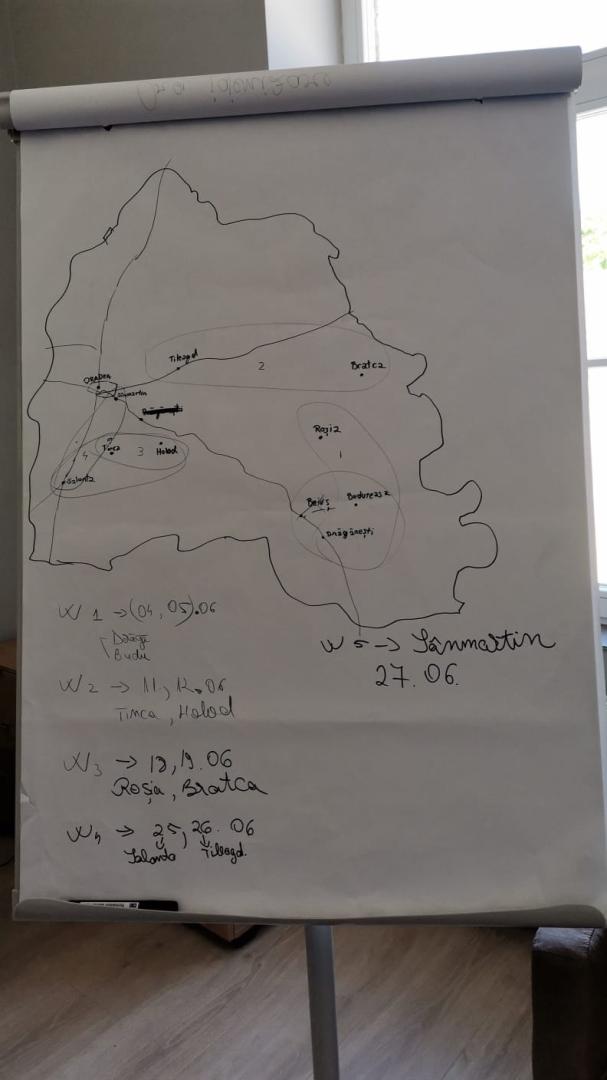 ORADEA
Tileagd
2
Bratca
Sânmartin
Roșia
1
4
Tinca
3
Holod
Salonta
Beiuș
Budureasa
Drăgănești
W 1 → (04, 05).06
Drăgă
Budu
W 2 → 11, 12.06
Tinca, Holod
W 3 → 18, 19.06
Roșia, Bratca
W 4 → 25, 26.06
Salonta Tileagd.
W 5 → Sânmartin
27.06.